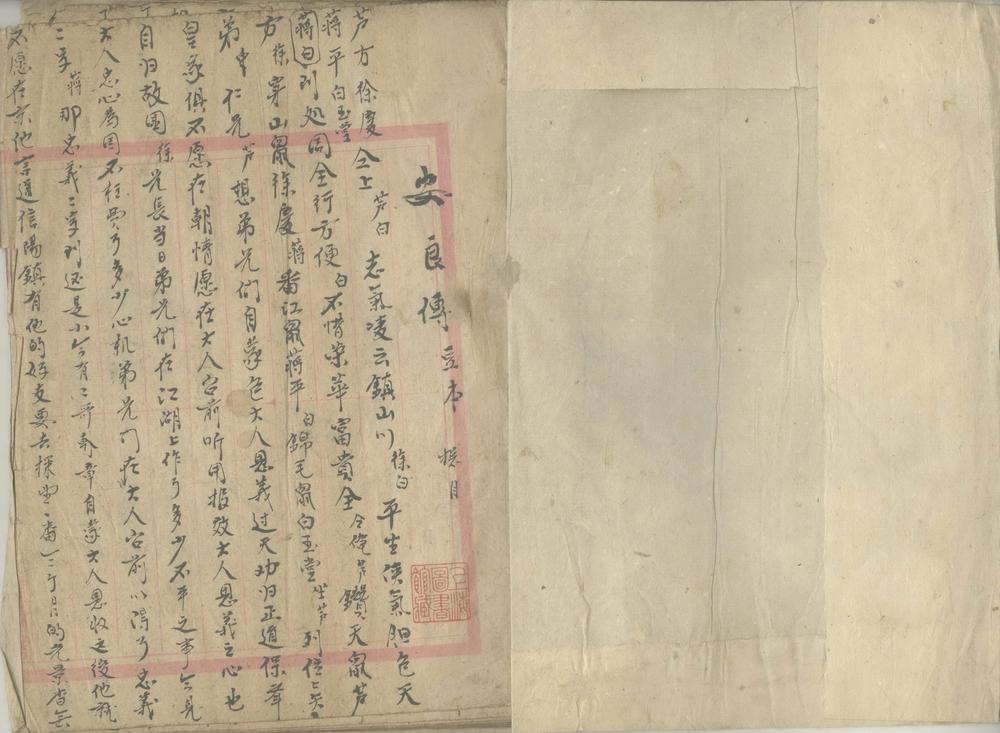 安良傳 豆本 接目
芦方徐慶仝上 芦白 志氣凌云鎮山川 徐白 平生俠氣胆包天
蔣平白玉堂
蔣白 到处周全行方便 白 不惜荣華富貴全 仝 俺 芦 鑽天鼠芦
方 徐 穿山鼠徐慶 蔣 番江鼠蔣平 白 錦毛鼠白玉堂 坐 芦 列位上
弟 仁兄 芦 想弟兄們自蒙包大人恩義过天劝归正道保
皇家俱不愿在朝情愿在大人台前听用报效大人恩義之心也
自归故園 徐 兄長当日弟兄們在江湖上作了多少不平之事今見
大人忠心為国不枉費了多少心机弟兄门在大人台前以得了忠義
二字 蔣 那忠義二字到还是小今有二哥奉章自蒙大人恩收之後他就
不愿在京他言道信陽鎮有他的好友要去探望一番 的光景杳無
上海圖書館藏